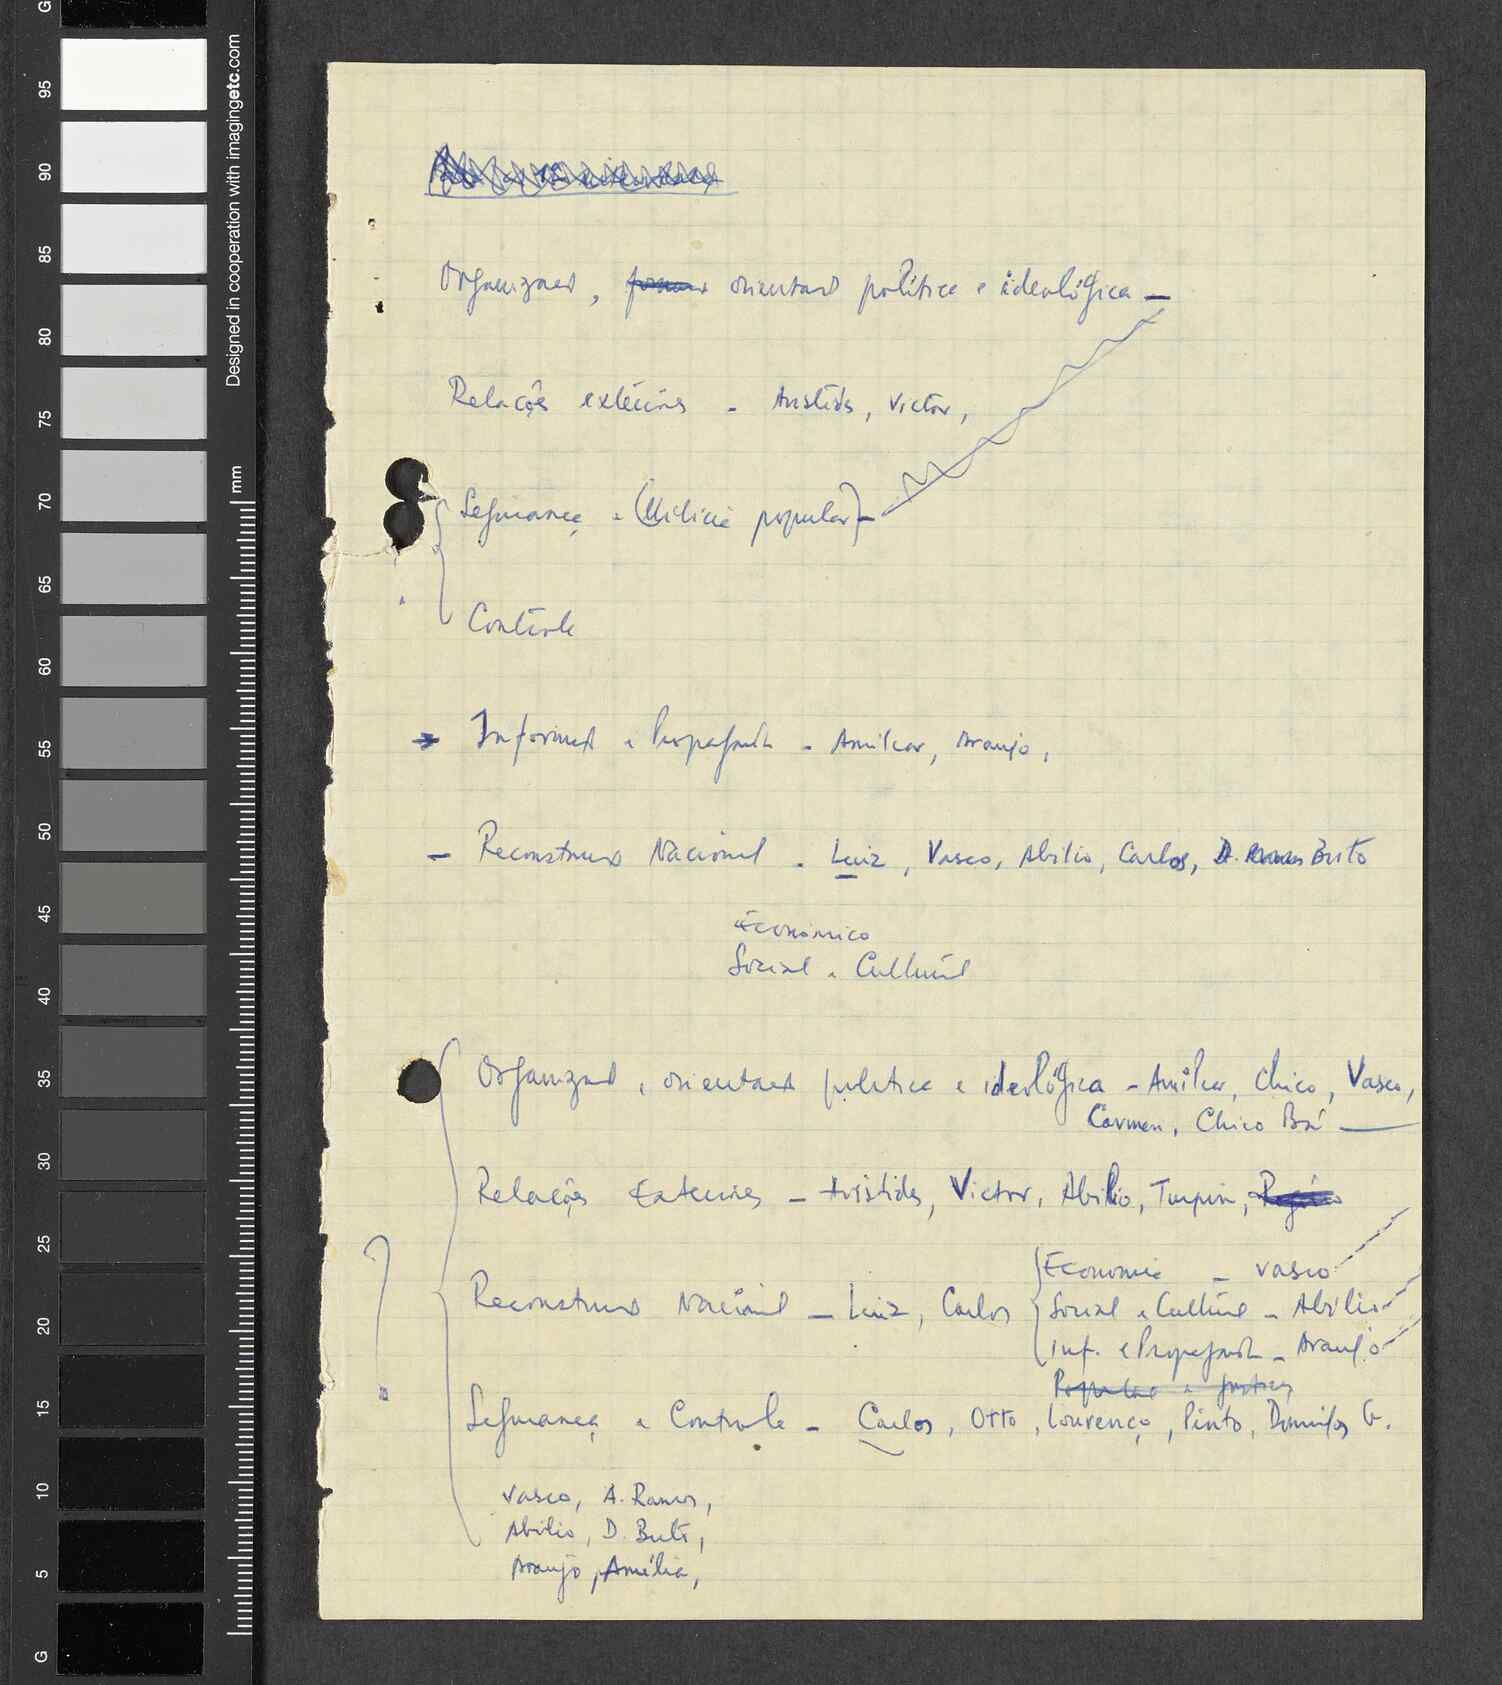 Designed in cooperation with imagingetc.com
mm
G
95
90
85
80
75
70
65
60
55
50
45
40
35
30
25
20
15
10
5
G
Organização, orientação política e ideológica —
Relações exteriores - Aristides, Victor,
Segurança e (Milícia popular) -
Contrôle
→ Informação e Propaganda - Amilcar, Araujo,
— Reconstrução Nacional - Luiz, Vasco, Abilio, Carlos, D. Brito
Económico
Social e Cultural
Organização e orientação politica e ideológica - Amílcar, Chico, Vasco,
Carmen, Chico Bá —
Relações Exteriores - Aristides, Victor, Abilio, Turpin,
Economia - Vasco
Reconstrução Nacional - Luiz, Carlos
Social e Cultural - Abilio
Inf. e Propaganda - Araujo
?
Segurança e Controle - Carlos, Otto, Lourenço, Pinto, Domingos G.
Vasco, A. Ramos,
Abilio, D. Brito,
Araujo, Amélia,